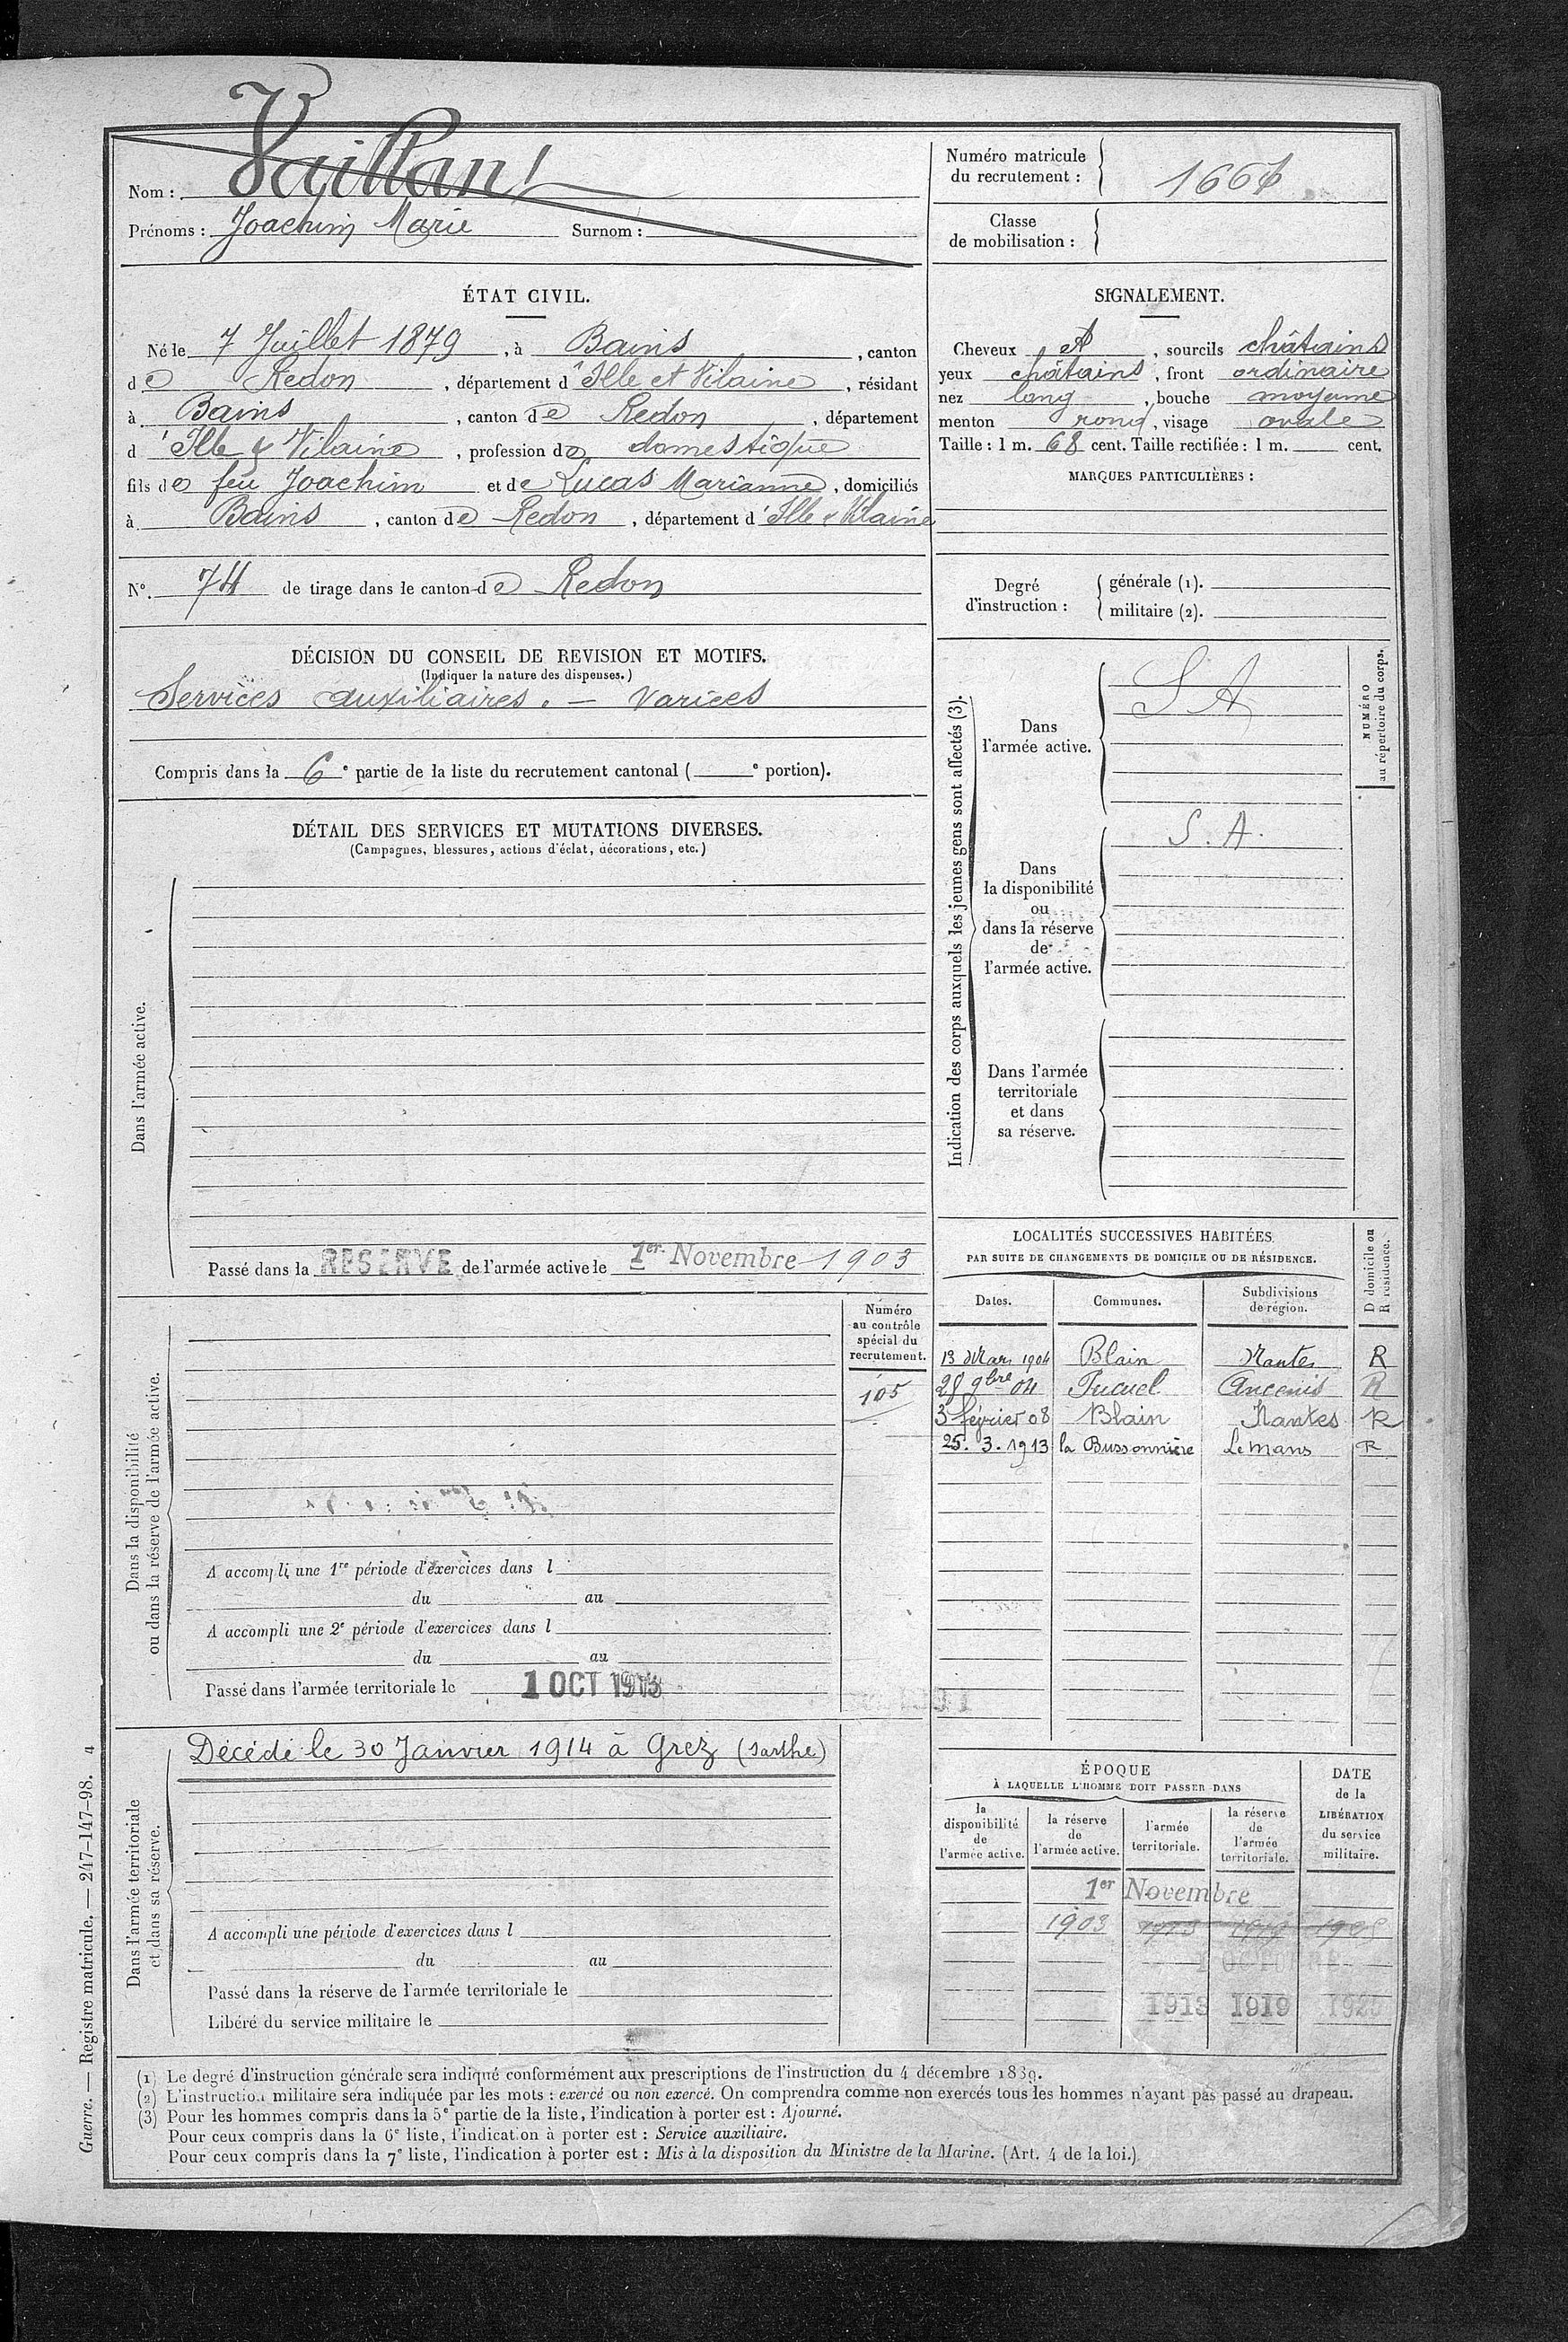 Nom : Vaillant
Prénoms : Joachim Marie Surnom :
Numéro matricule du recrutement :
Classe de mobilisation :
ÉTAT CIVIL.
Né le 7 Juillet 1879, à Bains, canton
de Redon, département d'Ille et Vilaine, résidant
à Bains, canton de Redon, département
d'Ille & Vilaine, profession de domestique
fils de feu Joachim et de Lucas Marianne, domiciliés
à Bains, canton de Redon, département d'Ille & Vilaine
N°. 74 de tirage dans le canton de Redon
SIGNALEMENT.
Cheveux et, sourcils châtains
yeux châtains, front ordinaire
nez long, bouche moyenne
menton rond, visage ovale
Taille : 1 m. 68 cent. Taille rectifiée : 1 m. cent.
MARQUES PARTICULIÈRES :
Degré d'instruction :
générale (1).
militaire (2).
DÉCISION DU CONSEIL DE REVISION ET MOTIFS.
(Indiquer la nature des dispenses.)
Services auxiliaires. — Varices
Compris dans la 6e partie de la liste du recrutement cantonal ( e portion).
DÉTAIL DES SERVICES ET MUTATIONS DIVERSES.
(Campagnes, blessures, actions d'éclat, décorations, etc.)
Dans l'armée active.
Passé dans la RESERVE de l'armée active le 1er Novembre 1903
Indication des corps auxquels les jeunes gens sont affectés (3).
NUMÉRO au répertoire du corps.
Dans l'armée active.
S A
Dans la disponibilité ou dans la réserve de l'armée active.
S. A.
Dans l'armée territoriale et dans sa réserve.
Dans la disponibilité ou dans la réserve de l'armée active.
Numéro au contrôle spécial du recrutement.
105
A accompli une 1re période d'exercices dans l
du au
A accompli une 2e période d'exercices dans l
du au
Passé dans l'armée territoriale le 1 OCT 1913
LOCALITÉS SUCCESSIVES HABITÉES
PAR SUITE DE CHANGEMENTS DE DOMICILE OU DE RÉSIDENCE.
Dates. Communes. Subdivisions de région. D domicile ou R résidence.
13 Mars 1904 Blain Nantes R
28 9bre 04 Puceul Ancenis R
3 février 08 Blain Nantes R
25. 3. 1913 la Bussonnière Le mans R
Dans l'armée territoriale et dans sa réserve.
Décédé le 30 Janvier 1914 à Grez (Sarthe)
A accompli une période d'exercices dans l
du au
Passé dans la réserve de l'armée territoriale le
Libéré du service militaire le
ÉPOQUE
À LAQUELLE L'HOMME DOIT PASSER DANS
la disponibilité de l'armée active.
la réserve de l'armée active.
l'armée territoriale.
la réserve de l'armée territoriale.
DATE de la LIBÉRATION du service militaire.
1er Novembre
1903
1 OCTOBRE
1913 1919
(1) Le degré d'instruction générale sera indiqué conformément aux prescriptions de l'instruction du 4 décembre 1889.
(2) L'instruction militaire sera indiquée par les mots : exercé ou non exercé. On comprendra comme non exercés tous les hommes n'ayant pas passé au drapeau.
(3) Pour les hommes compris dans la 5e partie de la liste, l'indication à porter est : Ajourné.
Pour ceux compris dans la 6e liste, l'indication à porter est : Service auxiliaire.
Pour ceux compris dans la 7e liste, l'indication à porter est : Mis à la disposition du Ministre de la Marine. (Art. 4 de la loi.)
Guerre. — Registre matricule. — 247-147-98. 4